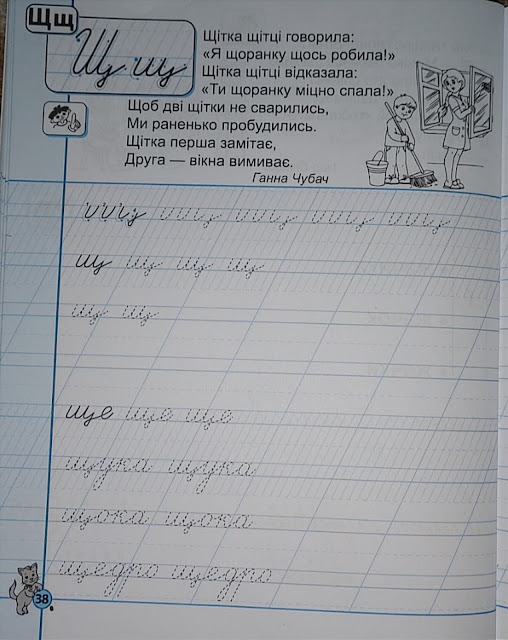 Щщ
Щ щ
Щітка щітці говорила:
«Я щоранку щось робила!»
Щітка щітці відказала:
«Ти щоранку міцно спала!»
Щоб дві щітки не сварились,
Ми раненько пробудились.
Щітка перша замітає,
Друга — вікна вимиває.
Ганна Чубач
щ щ щ щ
щ щ
ще ще ще
щука щука
щока щока
щедро щедро
38